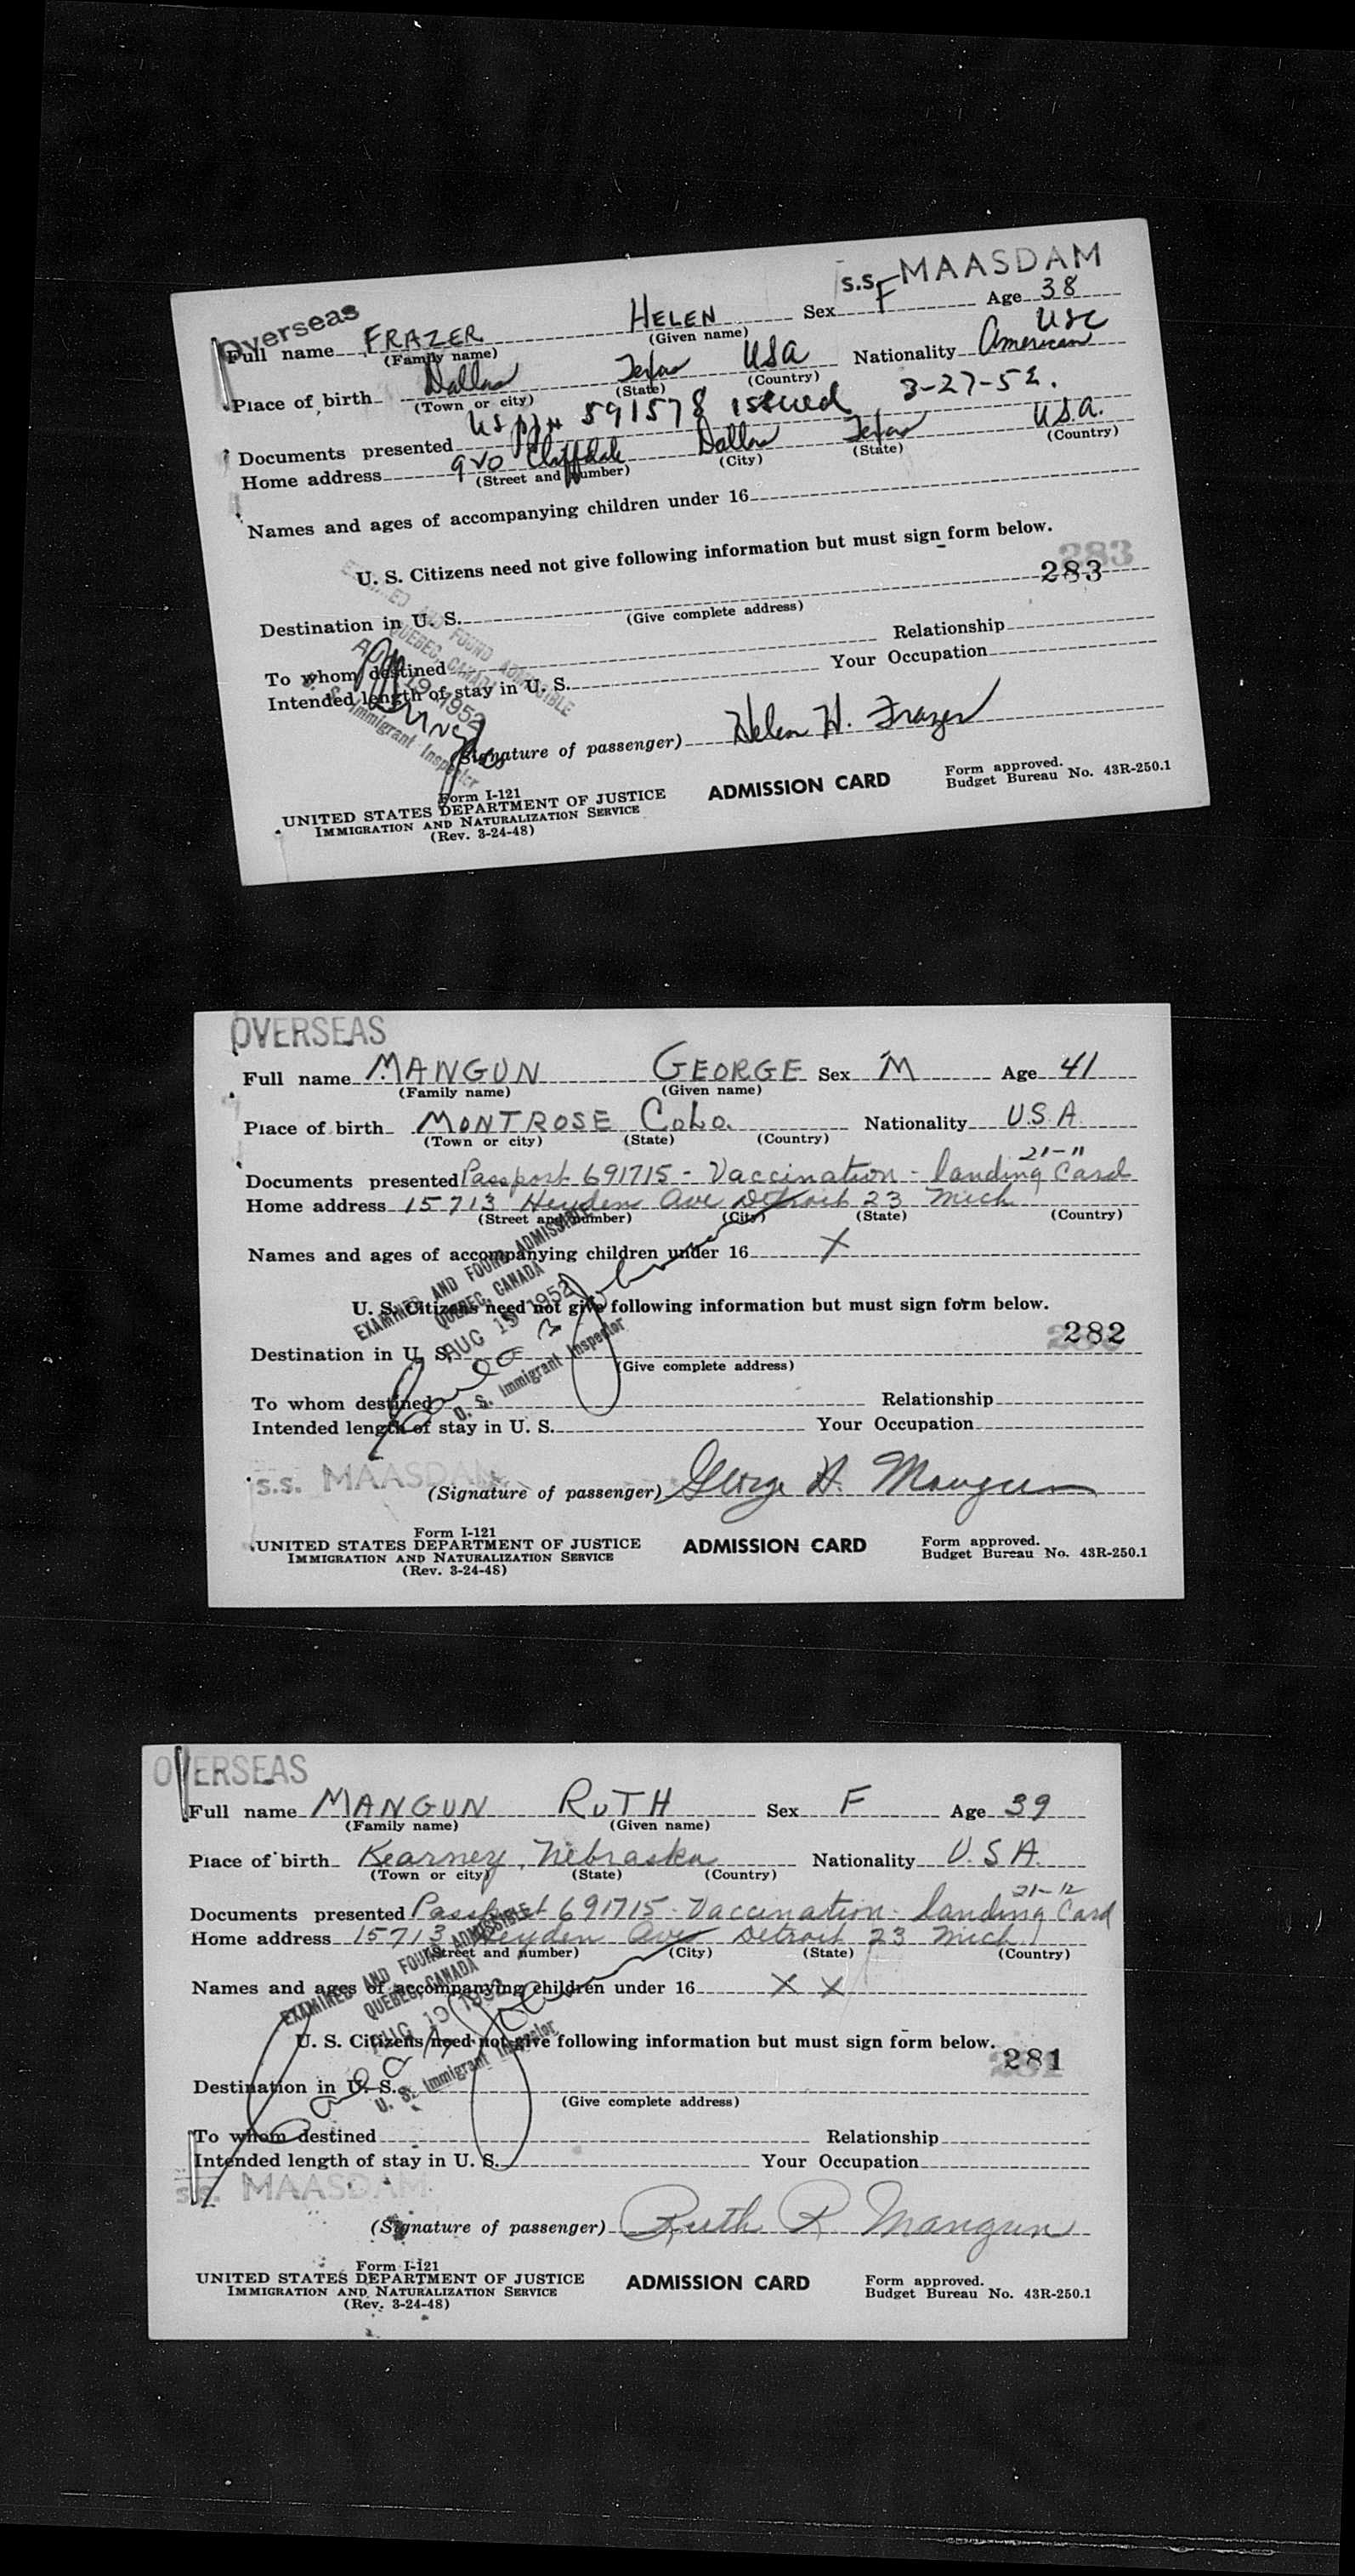 Overseas
S.S. MAASDAM
Full name FRAZER HELEN Sex F Age 38
(Family name) (Given name)
USC
Place of birth Dallas Texas USA Nationality American
(Town or city) (State) (Country)
Documents presented US pp# 591578 issued 3-27-52.
Home address 920 Dallas Texas U.S.A.
(Street and number) (City) (State) (Country)
Names and ages of accompanying children under 16
U. S. Citizens need not give following information but must sign form below.
283
283
Destination in U. S.
(Give complete address)
To whom destined Relationship
Intended length of stay in U. S. Your Occupation
EXAMINED AND FOUND ADMISSIBLE
QUEBEC, CANADA
AUG 19 1952
U. S. Immigrant Inspector
(Signature of passenger) Helen H. Frazer
Form I-121
UNITED STATES DEPARTMENT OF JUSTICE
IMMIGRATION AND NATURALIZATION SERVICE
(Rev. 3-24-48)
ADMISSION CARD
Form approved.
Budget Bureau No. 43R-250.1
OVERSEAS
Full name MANGUN GEORGE Sex M Age 41
(Family name) (Given name)
Place of birth MONTROSE COLO. Nationality U.S.A.
(Town or city) (State) (Country)
21-11
Documents presented Passport 691715 - Vaccination - landing Card
Home address 15713 Heyden Ave Detroit 23 Mich
(Street and number) (City) (State) (Country)
Names and ages of accompanying children under 16 X
EXAMINED AND FOUND ADMISSIBLE
QUEBEC, CANADA
AUG 19 1952
U. S. Immigrant Inspector
U. S. Citizens need not give following information but must sign form below.
282
Destination in U. S.
(Give complete address)
To whom destined Relationship
Intended length of stay in U. S. Your Occupation
S.S. MAASDAM
(Signature of passenger) George H. Mangun
Form I-121
UNITED STATES DEPARTMENT OF JUSTICE
IMMIGRATION AND NATURALIZATION SERVICE
(Rev. 3-24-48)
ADMISSION CARD
Form approved.
Budget Bureau No. 43R-250.1
OVERSEAS
Full name MANGUN RUTH Sex F Age 39
(Family name) (Given name)
Place of birth Kearney, Nebraska Nationality U.S.A.
(Town or city) (State) (Country)
21-12
Documents presented Passport 691715 - Vaccination - landing Card
Home address 15713 Heyden Ave Detroit 23 Mich
(Street and number) (City) (State) (Country)
Names and ages of accompanying children under 16 X X
EXAMINED AND FOUND ADMISSIBLE
QUEBEC, CANADA
AUG 19 1952
U. S. Immigrant Inspector
U. S. Citizens need not give following information but must sign form below.
281
Destination in U. S.
(Give complete address)
To whom destined Relationship
Intended length of stay in U. S. Your Occupation
S.S. MAASDAM
(Signature of passenger) Ruth R. Mangun
Form I-121
UNITED STATES DEPARTMENT OF JUSTICE
IMMIGRATION AND NATURALIZATION SERVICE
(Rev. 3-24-48)
ADMISSION CARD
Form approved.
Budget Bureau No. 43R-250.1